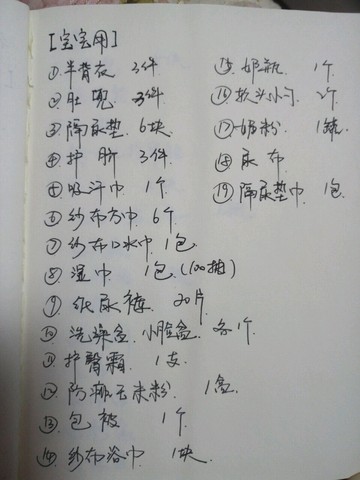 [宝宝用]
①半背衣 3件
②肚兜 3件
③隔尿垫 6块
④护脐 3件
⑤吸汗巾 1个
⑥纱布方巾 6个
⑦纱布口水巾 1包
⑧湿巾 1包(100抽)
⑨纸尿裤 20片
⑩洗澡盆、小脸盆 各1个
⑪护臀霜 1支
⑫防痱玉米粉 1盒
⑬包被 1个
⑭纱布浴巾 1块
⑮奶瓶 1个
⑯软头小勺 2个
⑰奶粉 1罐
⑱尿布
⑲隔尿垫巾 1包